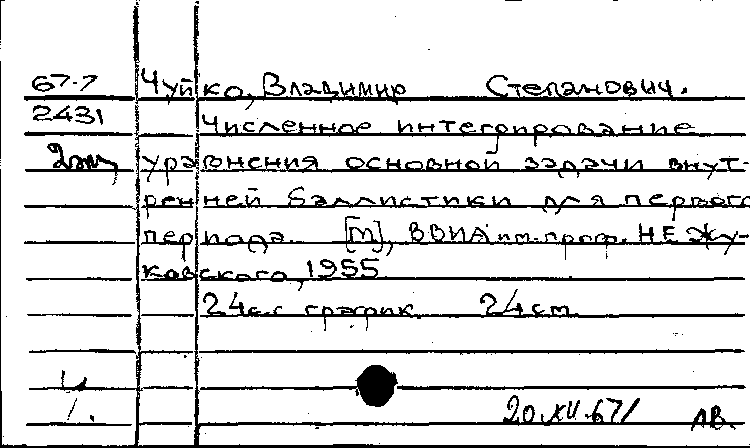 67-7 Чуйко, Владимир Степанович.
2431 Численное интегрирование
2экз уравнения основной задачи внут-
ренней баллистики для первого
периода. [М], ВВИА им. проф. Н Е Жу-
ковского, 1955
24с.с график. 24 см.
20.XII.67/ ЛВ.